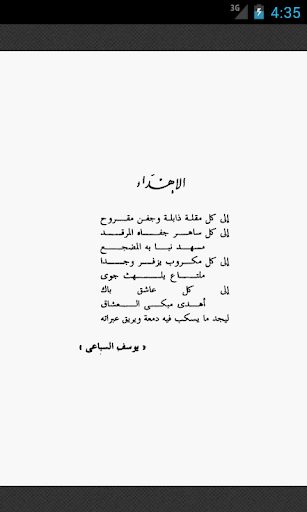 3G 4:35
الإهداء
إلى كل مقلة ذابلة وجفن مقروح
إلى كل ساهر جفاه المرقد
مسهد نبا به المضجع
إلى كل مكروب يزفر وجدا
ملتاع يلهث جوى
إلى كل عاشق باك
أهدى مبكى العشاق
ليجد ما يسكب فيه دمعة وبريق عبراته
« يوسف السباعى »